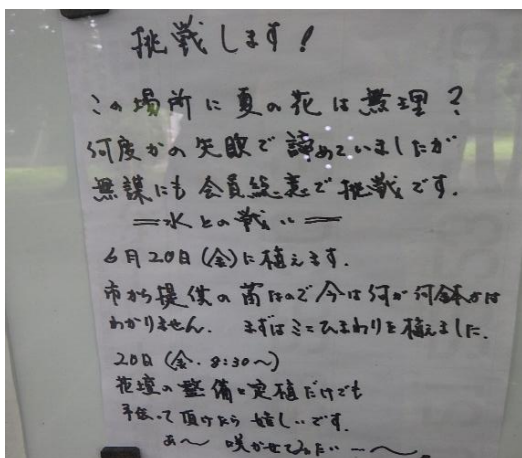 挑戦します!
この場所に夏の花は無理?
何度かの失敗で諦めていましたが
無謀にも会員総意で挑戦です.
=水との戦い=
6月20日(金)に植えます.
市から提供の苗なので今は何が何鉢かは
わかりません. まずはミニひまわりを植えました.
20日(金・8:30~)
花壇の整備と定植だけでも
手伝って頂けたら嬉しいです.
あ~ 咲かせてみたい ー~.